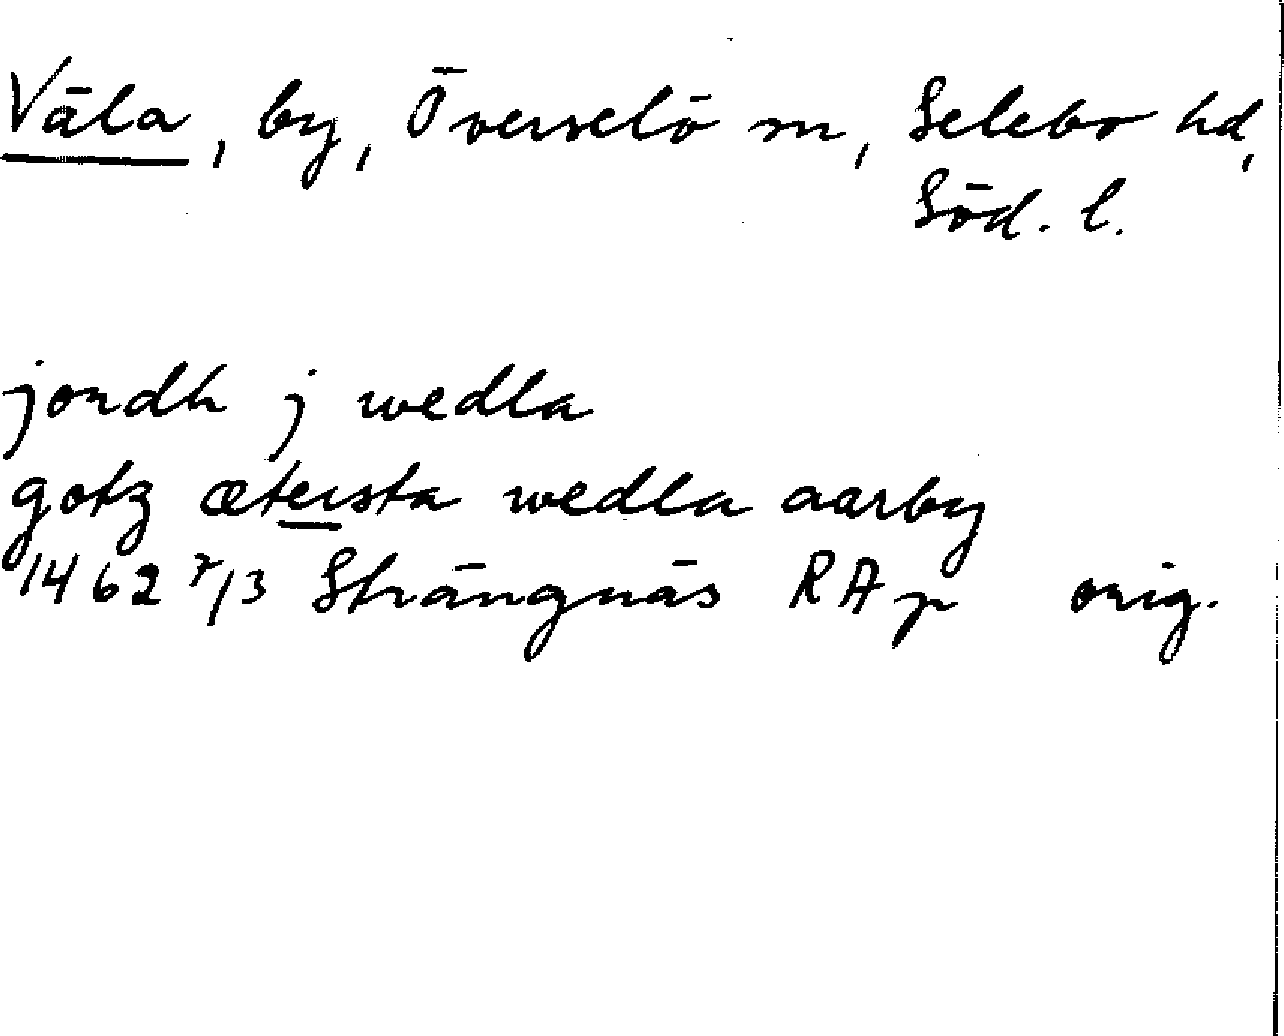 Väla, by, Överselö sn, Selebo hd,
Söd. l.
jordh j wedla
gotz ætersta wedla aarby
1462 7/3 Strängnäs RAp orig.